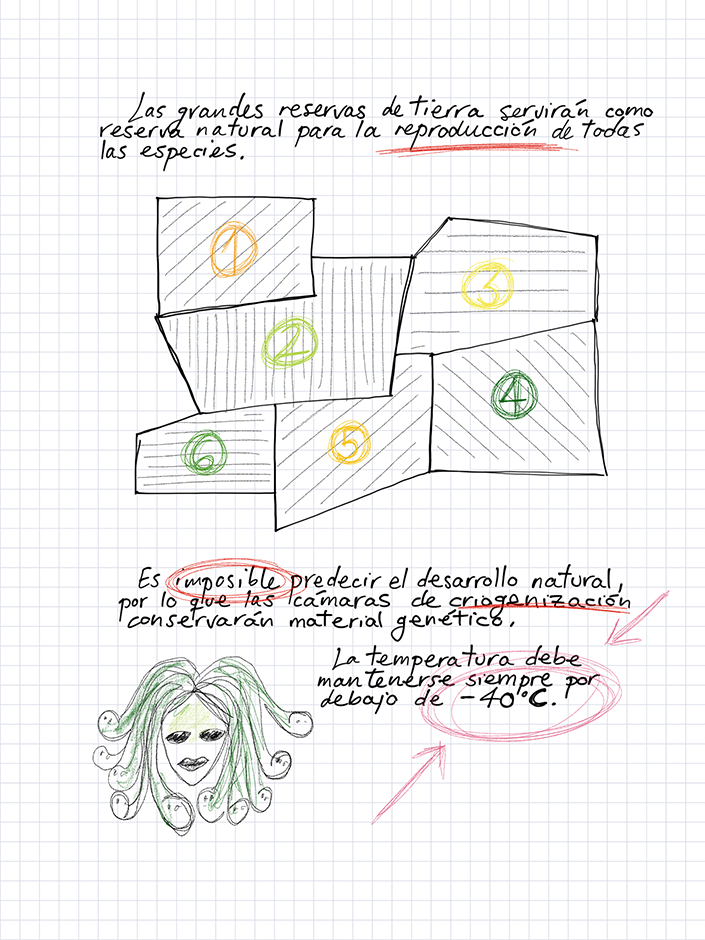 Las grandes reservas de tierra servirán como
reserva natural para la reproducción de todas
las especies.
1
2
3
4
6
5
Es imposible predecir el desarrollo natural,
por lo que las cámaras de criogenización
conservarán material genético.
La temperatura debe
mantenerse siempre por
debajo de -40°C.